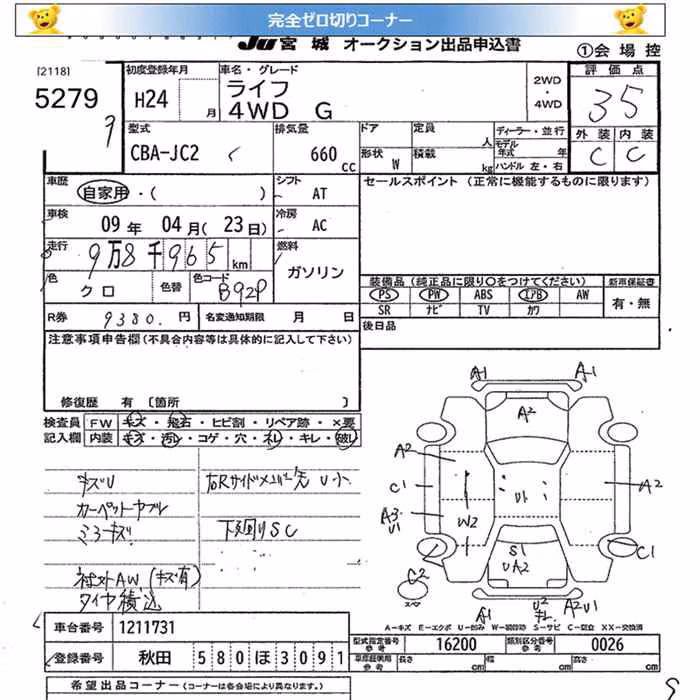 完全ゼロ切りコーナー
JU 宮城 オークション出品申込書
①会場控
[2118]
5279
初度登録年月
H24 月
車名・グレード
ライフ
4WD G
2WD
・
4WD
評価点
35
外装 内装
C C
型式
CBA-JC2
排気量
660
cc
ドア 定員 人
形状 W 積載 kg
ディーラー・並行
モデル年式 年
ハンドル 左・右
車歴
自家用・( )
シフト
AT
セールスポイント (正常に機能するものに限ります)
車検
09年 04月(23日)
冷房
AC
走行
9万8千965 km
燃料
ガソリン
色
クロ
色替
色コード
B92P
装備品 (純正品に限り○をつけてください)
新車保証書
PS PW ABS エアB AW
SR ナビ TV カワ
有・無
R券 9380.円
名変通知期限 月 日
後日品
注意事項申告欄(不具合内容等は具体的に記入して下さい)
修復歴 有 〔箇所 〕
検査員 FW キズ・飛石・ヒビ割・リペア跡・×要
記入欄 内装 キズ・汚レ・コゲ・穴・ネレ・キレ・破レ
キズU
右Rサイドメンバー先 U小
カーペットヤブレ
ミラーキズ
下廻りSC
社外AW(キズ有)
タイヤ積込
A1 A1
A2
A2
C1
A3 U1
W2
U1
A2
C1
S1
UA2
C2
スペア
A1
U2
キレ
A2U1
A-キズ E-エクボ U-凹み W-補修跡 S-サビ C-腐食 XX-交換済
車台番号 1211731
登録番号 秋田 580 ほ 3091
型式指定番号 参考 16200
類別区分番号 参考 0026
車庫証明用 参考 長さ cm 幅 cm 高さ cm
希望出品コーナー (コーナーは各会場により異なります。)